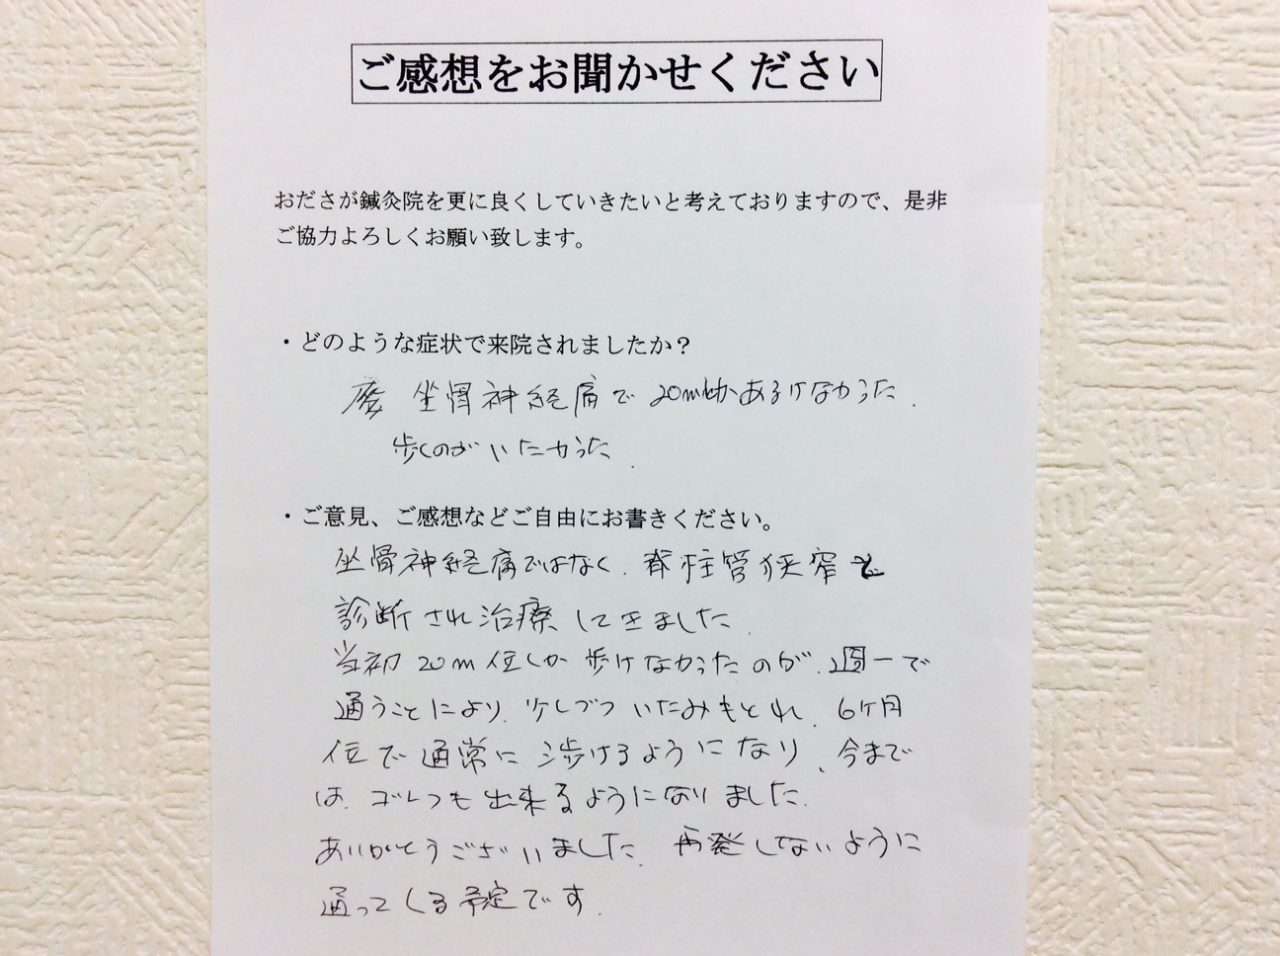 ご感想をお聞かせください
おださが鍼灸院を更に良くしていきたいと考えておりますので、是非
ご協力よろしくお願い致します。
・どのような症状で来院されましたか?
坐骨神経痛で 20mしかあるけなかった.
歩くのがいたかった.
・ご意見、ご感想などご自由にお書きください。
坐骨神経痛ではなく. 脊柱管狭窄と
診断され治療してきました.
当初 20m位しか歩けなかったのが. 週一で
通うことにより. 少しづついたみもとれ. 6ヶ月
位で通常に歩けるようになり、今まで
は. ゴルフも出来るようになりました.
ありがとうございました. 再発しないように
通ってくる予定です.